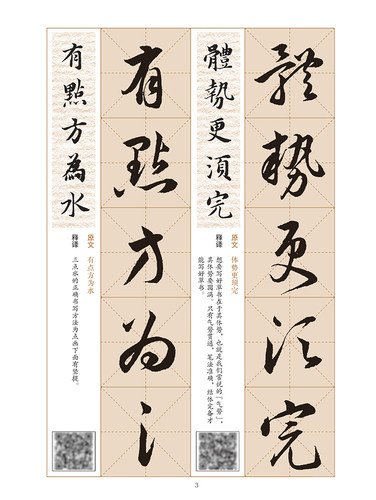 體勢更須完
體勢更須完
原文 体势更须完
释译 想要写好草书在于其体势，也就是我们常说的“气势”，
其体势要圆满。只有气势贯通，笔法准确，结体完备才
能写好草书。
有點方為氵
有點方為水
原文 有点方为水
释译 三点水的正确书写方法为点画下面有竖提。
3